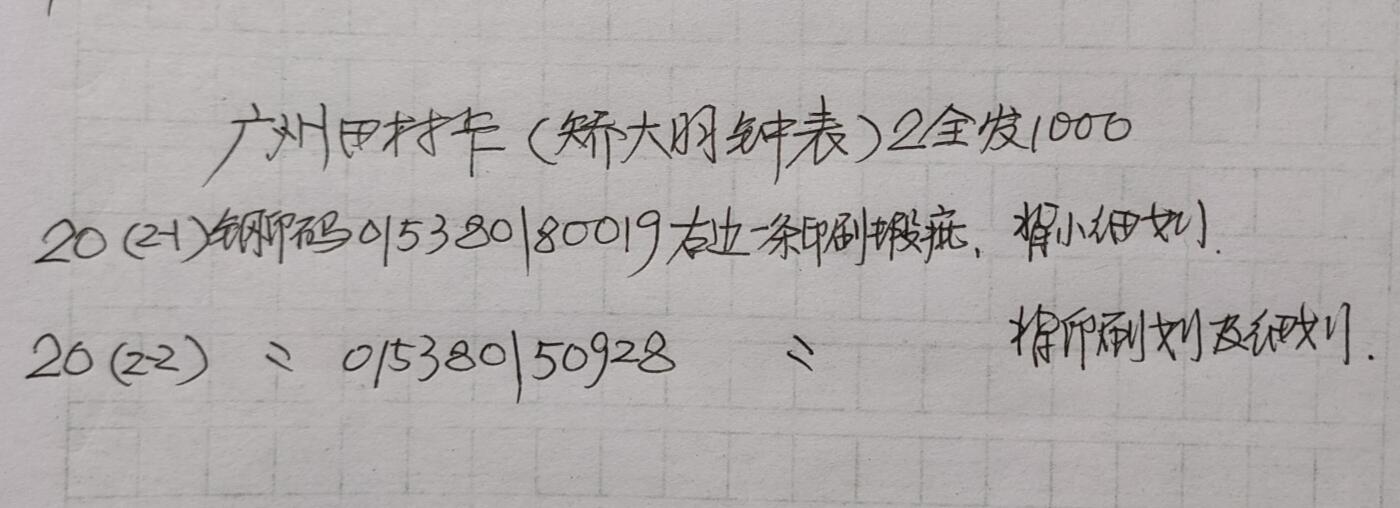 广州田村卡（矫大明钟表）2全发1000
20（2-1）钢印码0153801 80019右边一条印刷瑕疵，褶小细划．
20（2-2） 〃 0153801 50928 〃 褶印刷划及细划．